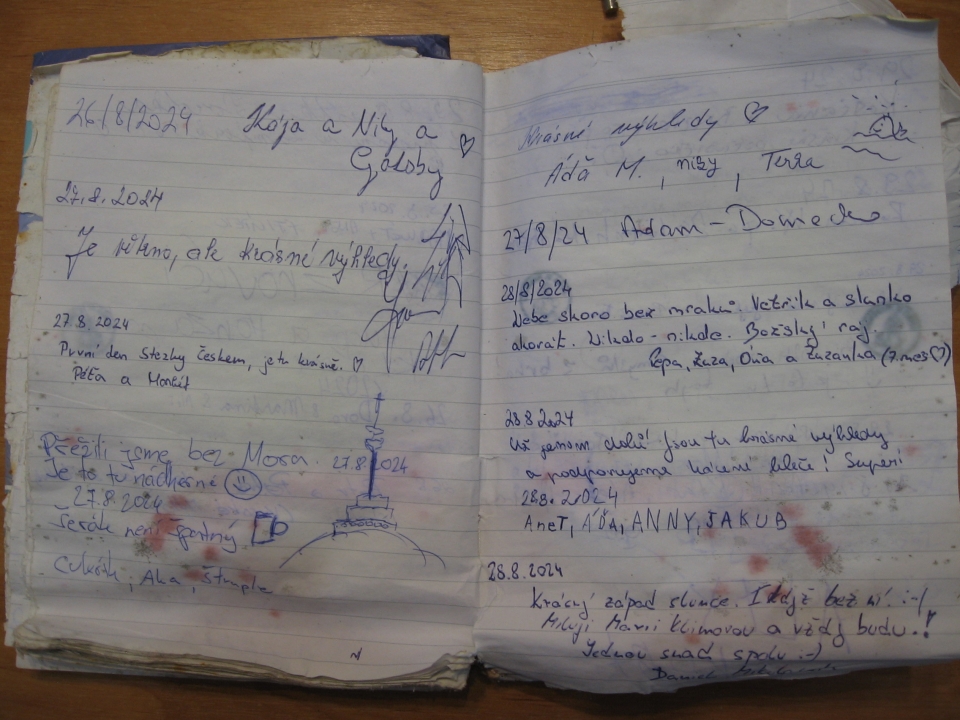 26/8/2024 Kája a Nily a
Gatsby
27.8.2024
Je větrno, ale krásné výhledy.
27.8.2024
První den Stezky Českem, je tu krásně.
Péťa a
Přežili jsme bez Mora. 27.8.2024
Je to tu nádherné
27.8.2024
Šerák není špatný
Cukřík, Aka,
Krásné výhledy
Áďa M., nizy, Terza
27/8/24 Adam -
28/8/2024
Nebe skoro bez mraků. Větřík a slunko
akorát. Nikdo - nikde. Božský ráj.
Pepa, Zuza, Ofia a Zuzanka (7.měs)
28.8.2024
Už jenom dolů! Jsou tu krásné výhledy
a podporujeme
28.8.2024
Aneт, ÁĎA, ANNY, JAKUB
28.8.2024
Krásný západ slunce. I když bez ní. :-(
Miluji Marii Klimovou a vždy budu.!
Jednou snad spolu :-)
Daniel